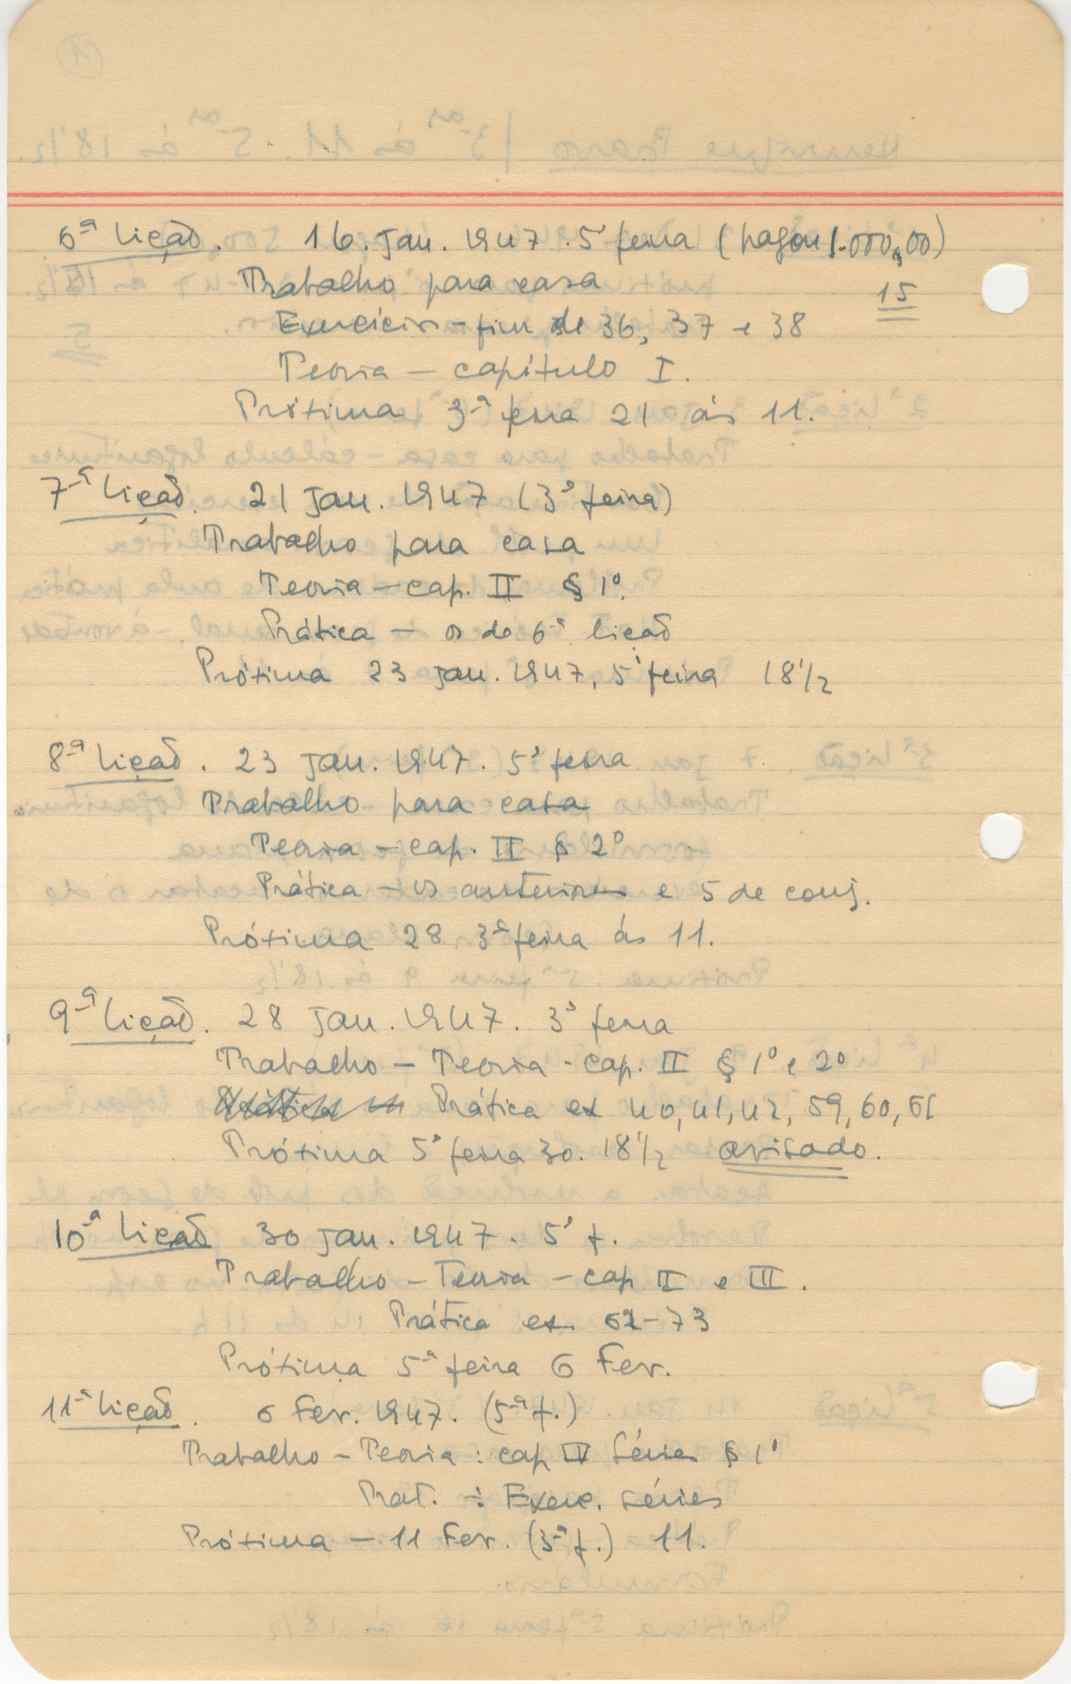 6ª Lição. 16. Jan. 1947. 5ª feira (pagou 1.000,00)
Trabalho para casa 15
Exercícios - fim de 36, 37 e 38
Teoria — capítulo I.
Próxima 3ª feira 21 ás 11.
7ª Lição. 21 Jan. 1947 (3ª feira)
Trabalho para casa
Teoria — cap. II § 1º.
Prática — os da 6ª lição
Próxima 23 Jan. 1947, 5ª feira 18 1/2
8ª Lição. 23 Jan. 1947. 5ª feira
Trabalho para casa
Teoria — cap. II § 2º
Prática — os anteriores e 5 de conj.
Próxima 28 3ª feira ás 11.
9ª Lição. 28 Jan. 1947. 3ª feira
Trabalho — Teoria - cap. II § 1º e 2º
Prática ex 40, 41, 42, 59, 60, 61
Próxima 5ª feira 30. 18 1/2 avisado.
10ª Lição 30 Jan. 1947. 5ª f.
Trabalho — Teoria — cap II e III.
Prática ex. 62-73
Próxima 5ª feira 6 Fev.
11ª Lição. 6 Fev. 1947. (5ª f.)
Trabalho — Teoria : cap IV Séries § 1º
Prat. : Exerc. séries
Próxima — 11 Fev. (3ª f.) 11.